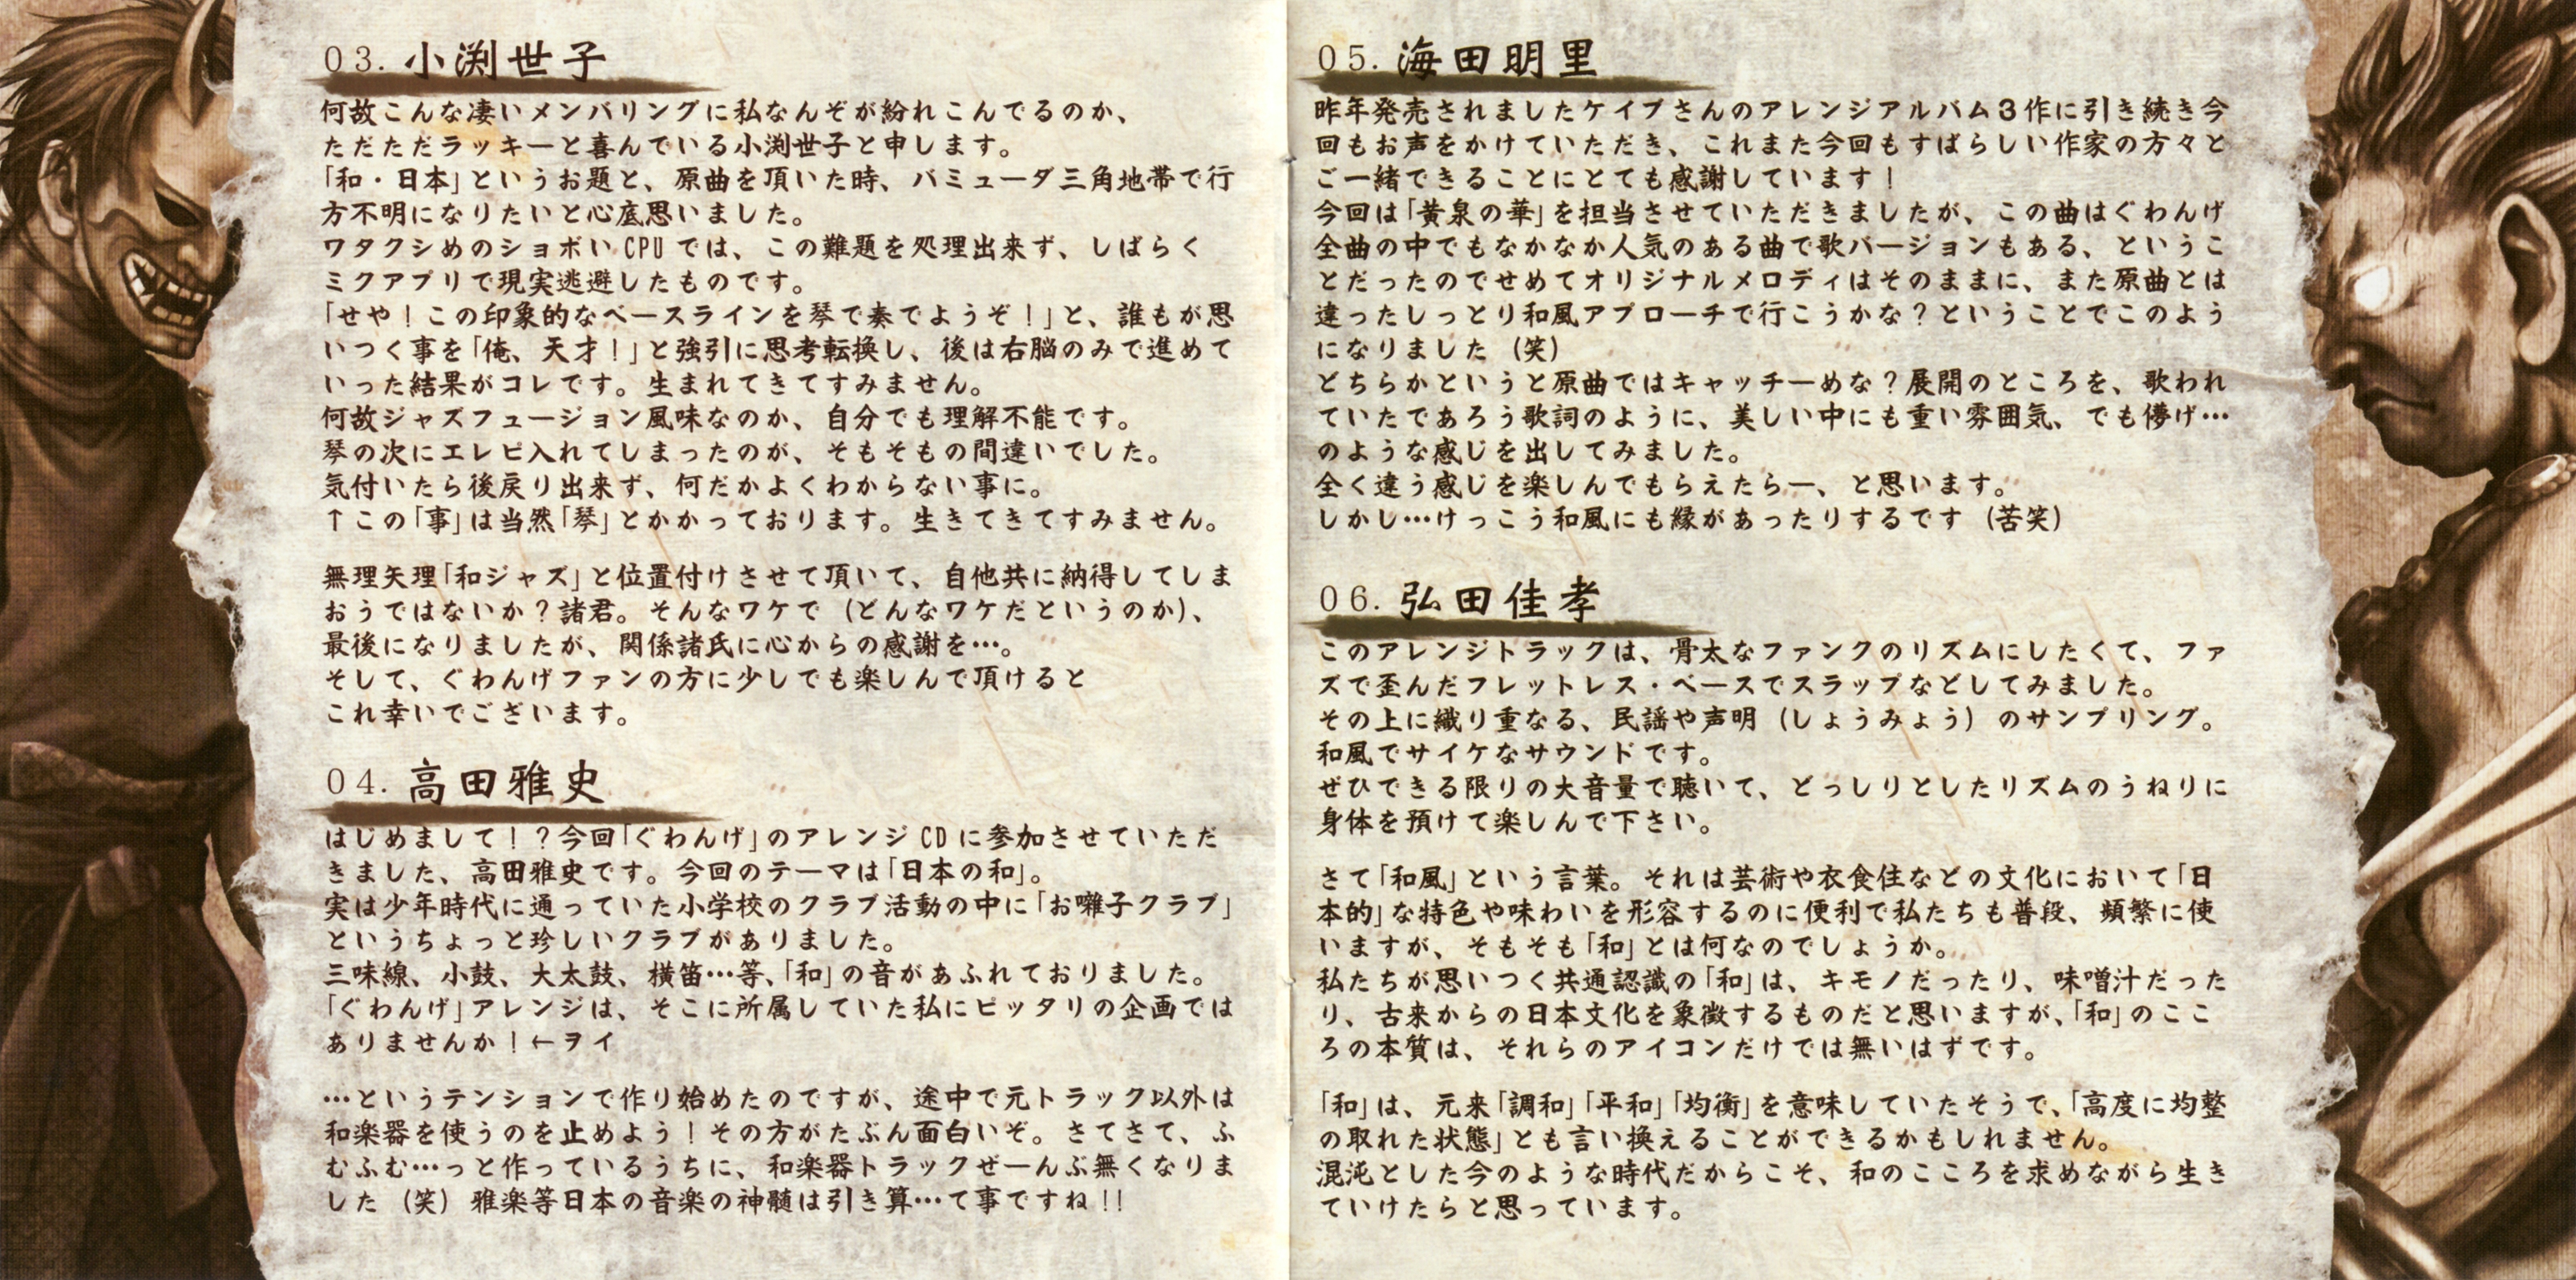 03. 小渕世子
何故こんな凄いメンバリングに私なんぞが紛れこんでるのか、
ただただラッキーと喜んでいる小渕世子と申します。
「和・日本」というお題と、原曲を頂いた時、バミューダ三角地帯で行
方不明になりたいと心底思いました。
ワタクシめのショボい CPU では、この難題を処理出来ず、しばらく
ミクアプリで現実逃避したものです。
「せや！この印象的なベースラインを琴で奏でようぞ！」と、誰もが思
いつく事を「俺、天才！」と強引に思考転換し、後は右脳のみで進めて
いった結果がコレです。生まれてきてすみません。
何故ジャズフュージョン風味なのか、自分でも理解不能です。
琴の次にエレピ入れてしまったのが、そもそもの間違いでした。
気付いたら後戻り出来ず、何だかよくわからない事に。
↑この「事」は当然「琴」とかかっております。生きてきてすみません。
無理矢理「和ジャズ」と位置付けさせて頂いて、自他共に納得してしま
おうではないか？諸君。そんなワケで（どんなワケだというのか）、
最後になりましたが、関係諸氏に心からの感謝を…。
そして、ぐわんげファンの方に少しでも楽しんで頂けると
これ幸いでございます。
04. 高田雅史
はじめまして！？今回「ぐわんげ」のアレンジ CD に参加させていただ
きました、高田雅史です。今回のテーマは「日本の和」。
実は少年時代に通っていた小学校のクラブ活動の中に「お囃子クラブ」
というちょっと珍しいクラブがありました。
三味線、小鼓、大太鼓、横笛…等、「和」の音があふれておりました。
「ぐわんげ」アレンジは、そこに所属していた私にピッタリの企画では
ありませんか！←ヲイ
…というテンションで作り始めたのですが、途中で元トラック以外は
和楽器を使うのを止めよう！その方がたぶん面白いぞ。さてさて、ふ
むふむ…っと作っているうちに、和楽器トラックぜーんぶ無くなりま
した（笑）雅楽等日本の音楽の神髄は引き算…て事ですね！！
05. 海田明里
昨年発売されましたケイブさんのアレンジアルバム３作に引き続き今
回もお声をかけていただき、これまた今回もすばらしい作家の方々と
ご一緒できることにとても感謝しています！
今回は「黄泉の華」を担当させていただきましたが、この曲はぐわんげ
全曲の中でもなかなか人気のある曲で歌バージョンもある、というこ
とだったのでせめてオリジナルメロディはそのままに、また原曲とは
違ったしっとり和風アプローチで行こうかな？ということでこのよう
になりました（笑）
どちらかというと原曲ではキャッチーめな？展開のところを、歌われ
ていたであろう歌詞のように、美しい中にも重い雰囲気、でも儚げ…
のような感じを出してみました。
全く違う感じを楽しんでもらえたらー、と思います。
しかし…けっこう和風にも縁があったりするです（苦笑）
06. 弘田佳孝
このアレンジトラックは、骨太なファンクのリズムにしたくて、ファ
ズで歪んだフレットレス・ベースでスラップなどしてみました。
その上に織り重なる、民謡や声明（しょうみょう）のサンプリング。
和風でサイケなサウンドです。
ぜひできる限りの大音量で聴いて、どっしりとしたリズムのうねりに
身体を預けて楽しんで下さい。
さて「和風」という言葉。それは芸術や衣食住などの文化において「日
本的」な特色や味わいを形容するのに便利で私たちも普段、頻繁に使
いますが、そもそも「和」とは何なのでしょうか。
私たちが思いつく共通認識の「和」は、キモノだったり、味噌汁だった
り、古来からの日本文化を象徴するものだと思いますが、「和」のここ
ろの本質は、それらのアイコンだけでは無いはずです。
「和」は、元来「調和」「平和」「均衡」を意味していたそうで、「高度に均整
の取れた状態」とも言い換えることができるかもしれません。
混沌とした今のような時代だからこそ、和のこころを求めながら生き
ていけたらと思っています。